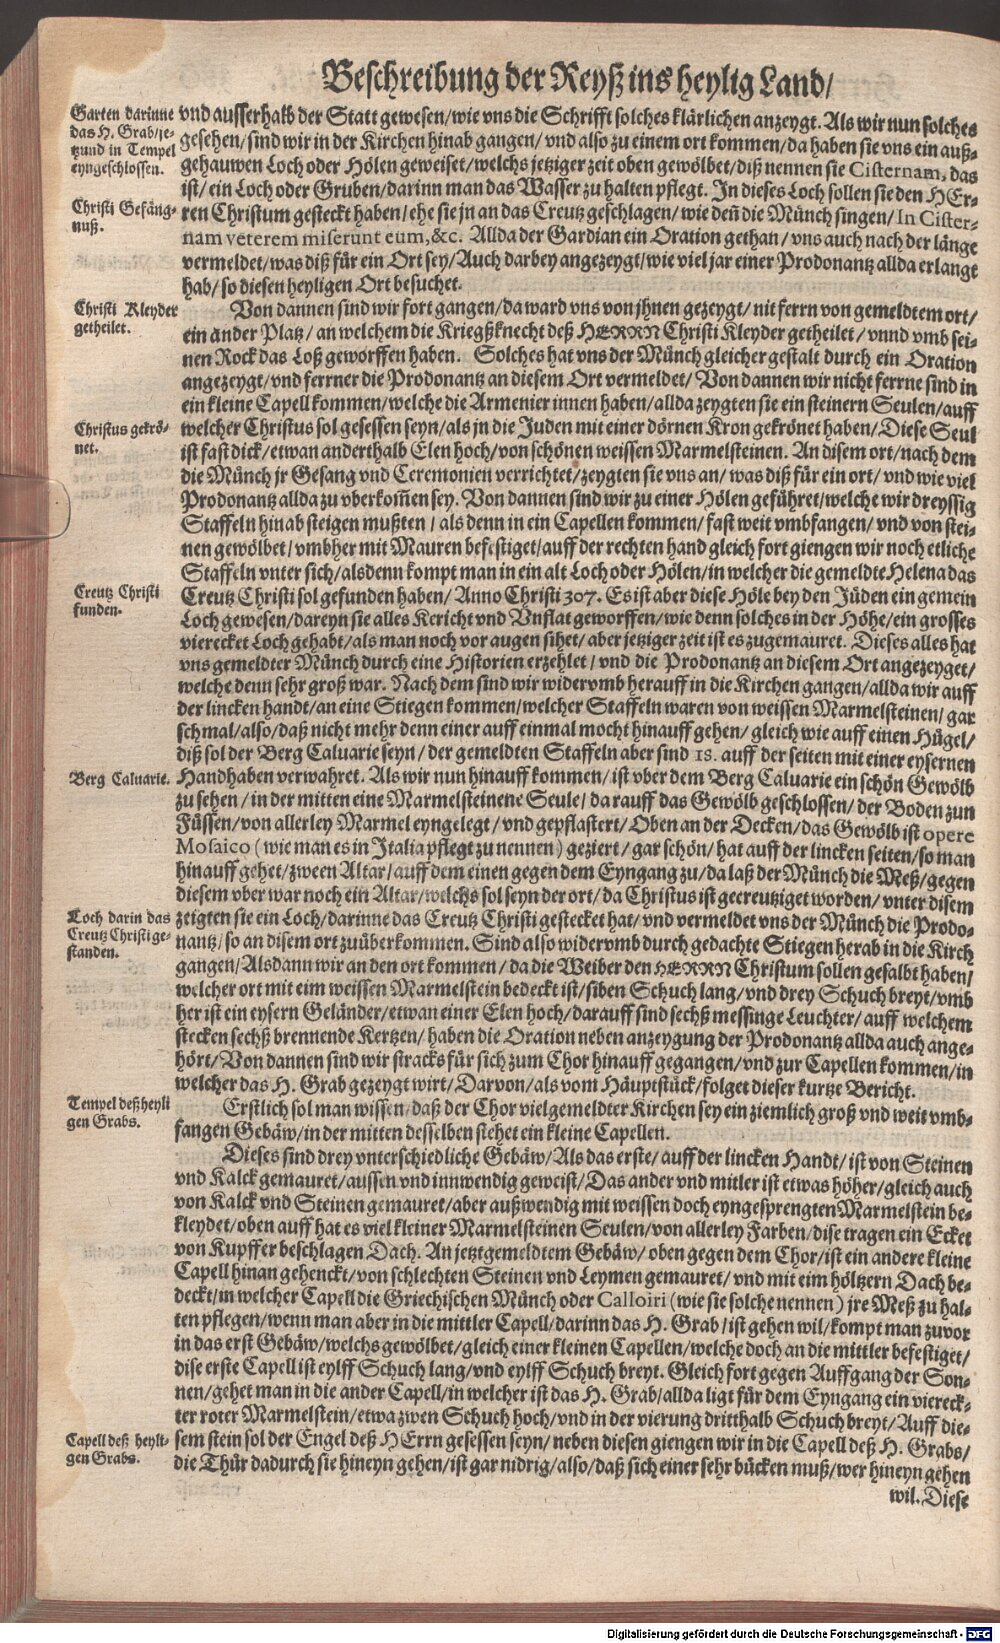 Beschreibung der Reyß ins heylig Land/
Garten darinne
das H. Grab/je-
tzund in Tempel
eyngeschlossen.
vnd ausserhalb der Statt gewesen/wie vns die Schrifft solches klärlichen anzeygt. Als wir nun solches
gesehen/sind wir in der Kirchen hinab gangen/vnd also zu einem ort kommen/da haben sie vns ein auß-
gehauwen Loch oder Hölen geweiset/welchs jetziger zeit oben gewölbet/diß nennen sie Cisternam, das
ist/ein Loch oder Gruben/darinn man das Wasser zu halten pflegt. In dieses Loch sollen sie den HEr-
Christi Gefäng-
nuß.
ren Christum gesteckt haben/ehe sie jn an das Creutz geschlagen/wie deñ die Münch singen/In Cister-
nam veterem miserunt eum,&c. Allda der Gardian ein Oration gethan/vns auch nach der länge
vermeldet/was diß für ein Ort sey/Auch darbey angezeygt/wie viel jar einer Prodonantz allda erlangt
hab/so diesen heyligen Ort besuchet.
Christi Kleyder
getheilet.
Von dannen sind wir fort gangen/da ward vns von jhnen gezeygt/nit ferrn von gemeldtem ort/
ein ander Platz/an welchem die Kriegßknecht deß HERRN Christi Kleyder getheilet/vnnd vmb sei-
nen Rock das Loß geworffen haben. Solches hat vns der Münch gleicher gestalt durch ein Oration
angezeygt/vnd ferrner die Prodonantz an diesem Ort vermeldet/Von dannen wir nicht ferrne sind in
ein kleine Capell kommen/welche die Armenier innen haben/allda zeygten sie ein steinern Seulen/auff
Christus gekrö-
net.
welcher Christus sol gesessen seyn/als jn die Juden mit einer dörnen Kron gekrönet haben/Diese Seul
ist fast dick/etwan anderthalb Elen hoch/von schönen weissen Marmelsteinen. An disem ort/nach dem
die Münch jr Gesang vnd Ceremonien verrichtet/zeygten sie vns an/was diß für ein ort/vnd wie viel
Prodonantz allda zu vberkom̃en sey. Von dannen sind wir zu einer Hölen geführet/welche wir dreyssig
Staffeln hinab steigen mußten/als denn in ein Capellen kommen/fast weit vmbfangen/vnd von stei-
nen gewölbet/vmbher mit Mauren befestiget/auff der rechten hand gleich fort giengen wir noch etliche
Staffeln vnter sich/alsdenn kompt man in ein alt Loch oder Hölen/in welcher die gemeldte Helena das
Creutz Christi
funden.
Creutz Christi sol gefunden haben/Anno Christi 307. Es ist aber diese Höle bey den Jüden ein gemein
Loch gewesen/dareyn sie alles Kericht vnd Vnflat geworffen/wie denn solches in der Höhe/ein grosses
vierecket Loch gehabt/als man noch vor augen sihet/aber jetziger zeit ist es zugemauret. Dieses alles hat
vns gemeldter Münch durch eine Historien erzehlet/vnd die Prodonantz an diesem Ort angezeyget/
welche denn sehr groß war. Nach dem sind wir widervmb herauff in die Kirchen gangen/allda wir auff
der lincken handt/an eine Stiegen kommen/welcher Staffeln waren von weissen Marmelsteinen/gar
schmal/also/daß nicht mehr denn einer auff einmal mocht hinauff gehen/gleich wie auff einen Hügel/
diß sol der Berg Caluarie seyn/der gemeldten Staffeln aber sind 18. auff der seiten mit einer eysernen
Berg Caluarie.
Handhaben verwahret. Als wir nun hinauff kommen/ist vber dem Berg Caluarie ein schön Gewölb
zu sehen/in der mitten eine Marmelsteinene Seule/darauff das Gewölb geschlossen/der Boden zun
Füssen/von allerley Marmel eyngelegt/vnd gepflastert/Oben an der Decken/das Gewölb ist opere
Mosaico (wie man es in Jtalia pflegt zu nennen) geziert/gar schön/hat auff der lincken seiten/so man
hinauff gehet/zween Altar/auff dem einen gegen dem Eyngang zu/da laß der Münch die Meß/gegen
diesem vber war noch ein Altar/welchs sol seyn der ort/da Christus ist gecreutziget worden/vnter disem
Loch darin das
Creutz Christi ge-
standen.
zeigten sie ein Loch/darinne das Creutz Christi gestecket hat/vnd vermeldet vns der Münch die Prodo-
nantz/so an disem ort zuüberkommen. Sind also widervmb durch gedachte Stiegen herab in die Kirch
gangen/Alsdann wir an den ort kommen/da die Weiber den HERRN Christum sollen gesalbt haben/
welcher ort mit eim weissen Marmelstein bedeckt ist/siben Schuch lang/vnd drey Schuch breyt/vmb
her ist ein eysern Geländer/etwan einer Elen hoch/darauff sind sechß messinge Leuchter/auff welchem
stecken sechß brennende Kertzen/haben die Oration neben anzeygung der Prodonantz allda auch ange-
hört/Von dannen sind wir stracks für sich zum Chor hinauff gegangen/vnd zur Capellen kommen/in
welcher das H. Grab gezeygt wirt/Darvon/als vom Häuptstück/folget dieser kurtze Bericht.
Tempel deß heyli
gen Grabs.
Erstlich sol man wissen/daß der Chor vielgemeldter Kirchen sey ein ziemlich groß vnd weit vmb-
fangen Gebäw/in der mitten desselben stehet ein kleine Capellen.
Dieses sind drey vnterschiedliche Gebäw/Als das erste/auff der lincken Handt/ist von Steinen
vnd Kalck gemauret/aussen vnd innwendig geweist/Das ander vnd mitler ist etwas höher/gleich auch
von Kalck vnd Steinen gemauret/aber außwendig mit weissen doch eyngesprengten Marmelstein be-
kleydet/oben auff hat es viel kleiner Marmelsteinen Seulen/von allerley Farben/dise tragen ein Ecket
von Kupffer beschlagen Dach. An jetztgemeldtem Gebäw/oben gegen dem Chor/ist ein andere kleine
Capell hinan gehenckt/von schlechten Steinen vnd Leymen gemauret/vnd mit eim höltzern Dach be-
deckt/in welcher Capell die Griechischen Münch oder Calloiri (wie sie solche nennen) jre Meß zu hal-
ten pflegen/wenn man aber in die mittler Capell/darinn das H. Grab/ist gehen wil/kompt man zuvor
in das erst Gebäw/welchs gewölbet/gleich einer kleinen Capellen/welche doch an die mittler befestiget/
dise erste Capell ist eylff Schuch lang/vnd eylff Schuch breyt. Gleich fort gegen Auffgang der Son-
nen/gehet man in die ander Capell/in welcher ist das H. Grab/allda ligt für dem Eyngang ein viereck-
ter roter Marmelstein/etwa zwen Schuch hoch/vnd in der vierung dritthalb Schuch breyt/Auff die-
Capell deß heyli-
gen Grabs.
sem stein sol der Engel deß HErrn gesessen seyn/neben diesen giengen wir in die Capell deß H. Grabs/
die Thür dadurch sie hineyn gehen/ist gar nidrig/also/daß sich einer sehr bücken muß/wer hineyn gehen
wil. Diese
Digitalisierung gefördert durch die Deutsche Forschungsgemeinschaft - DFG